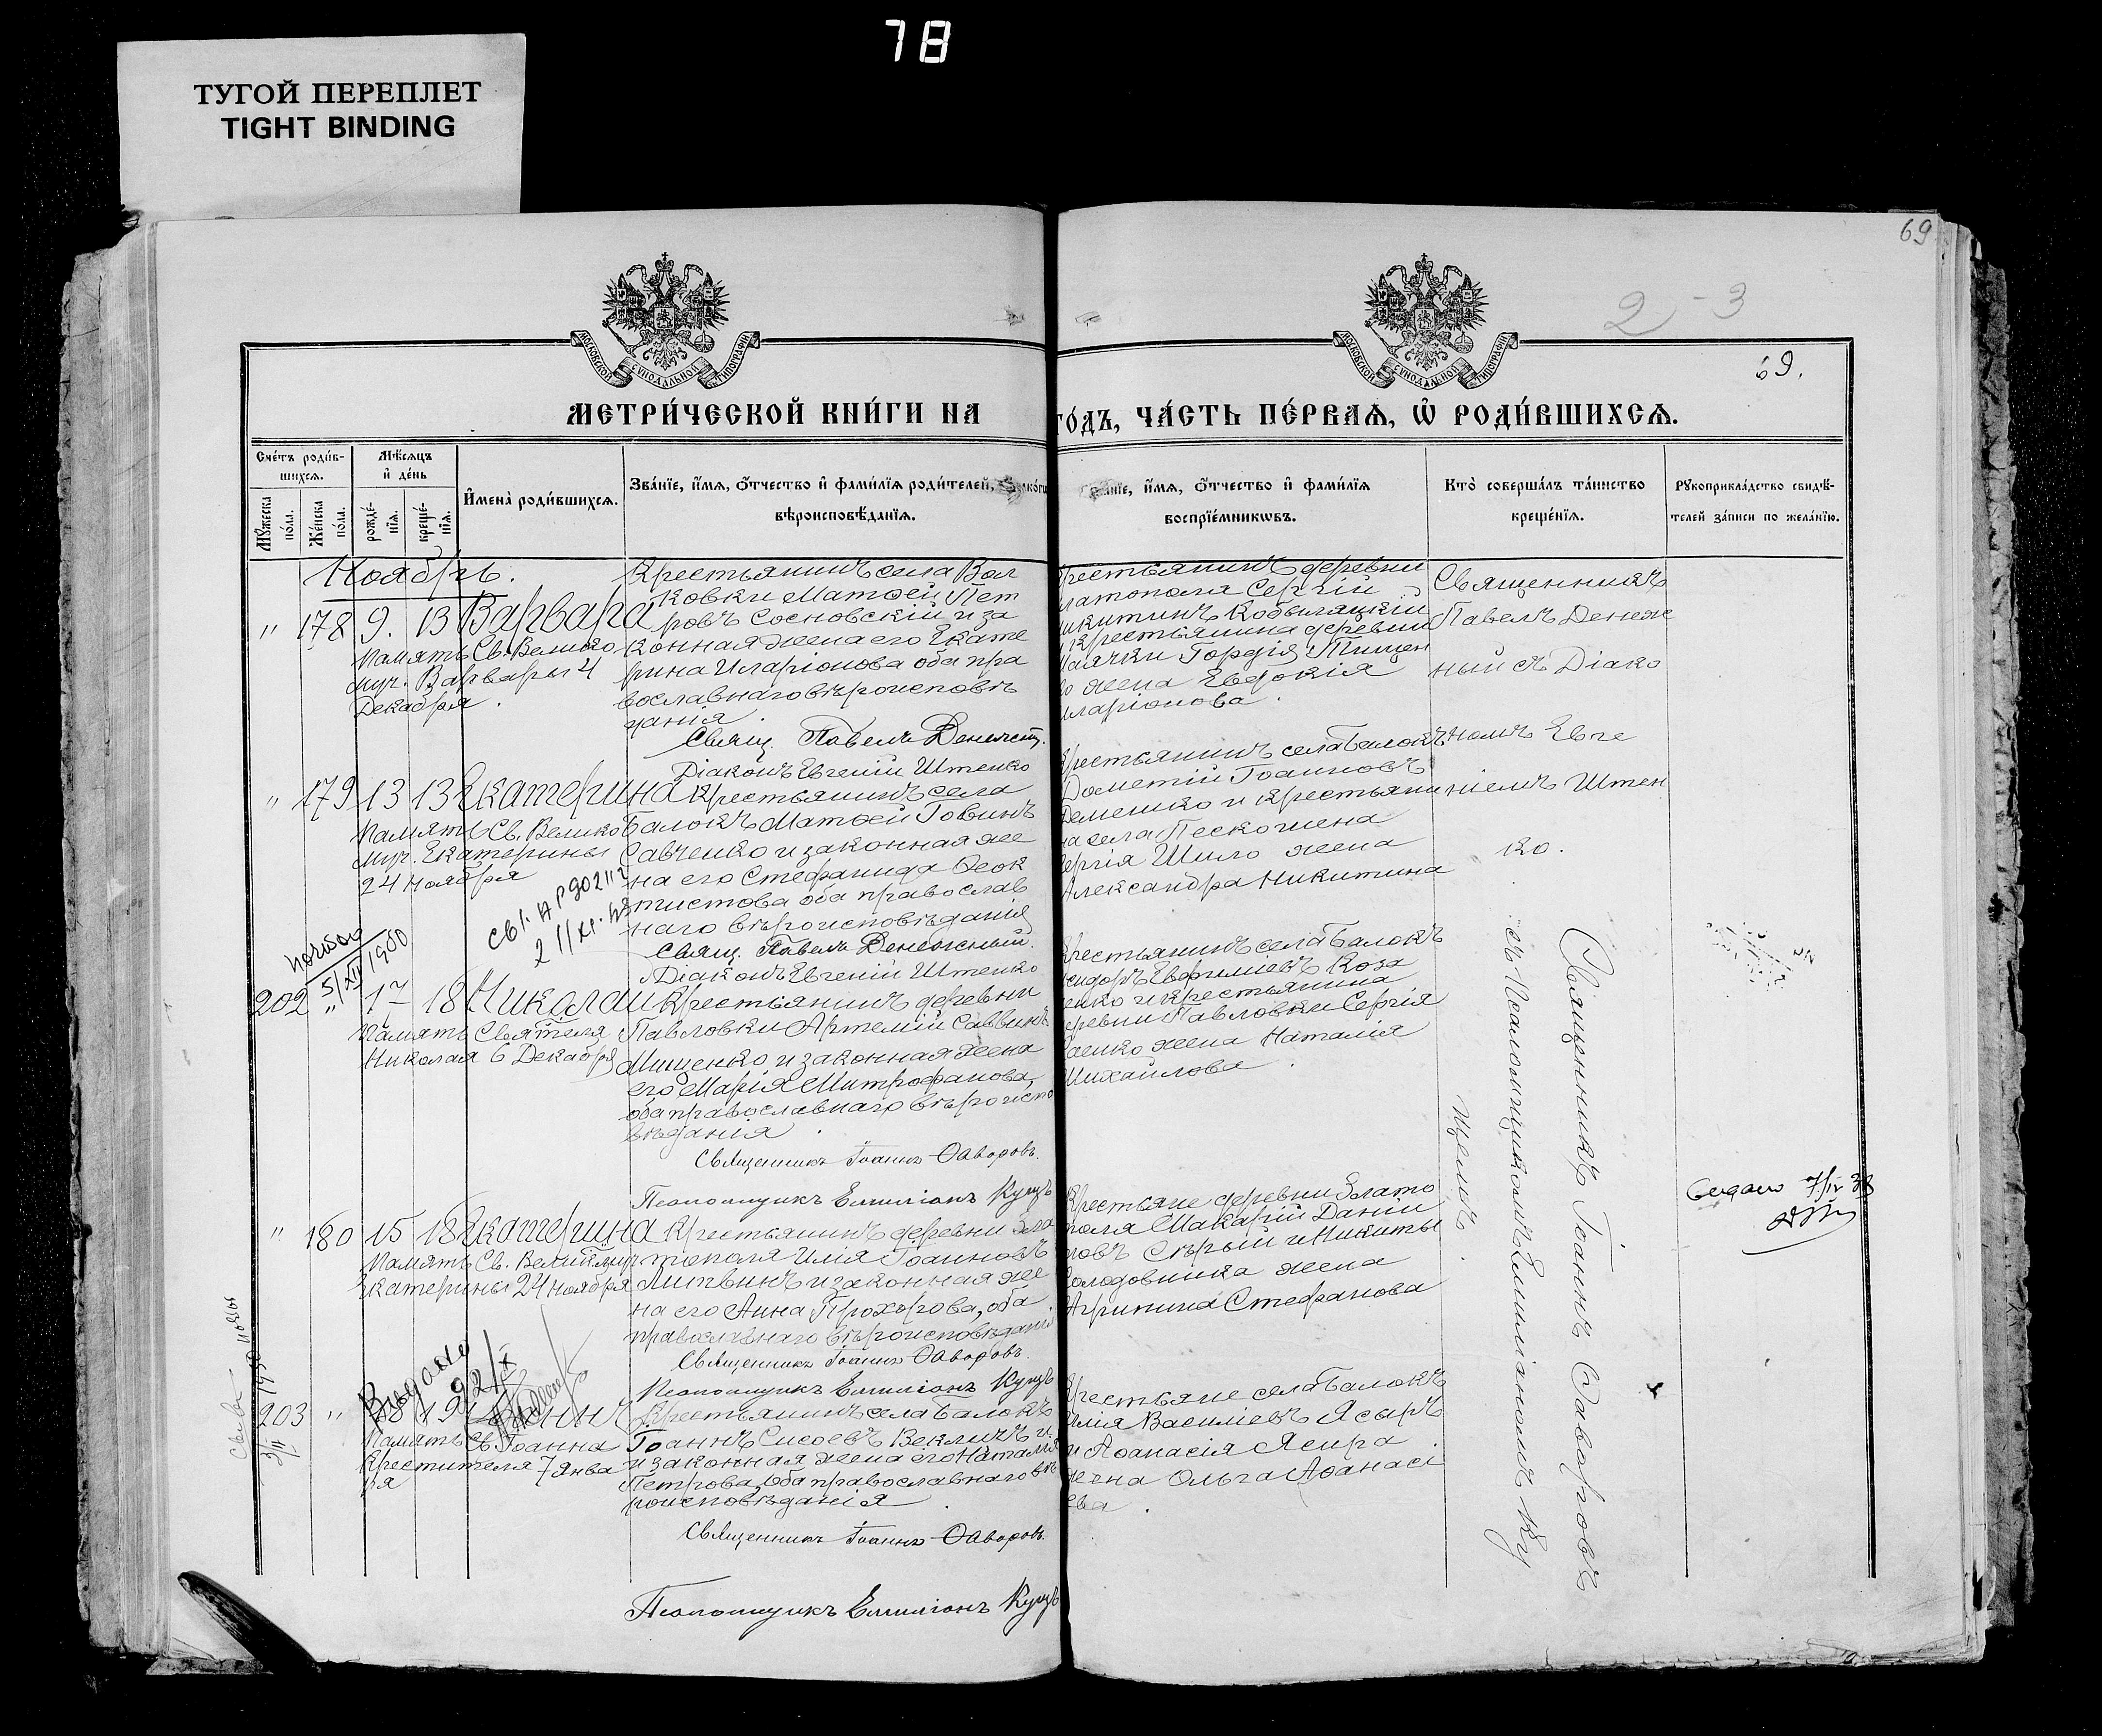 78
ТУГОЙ ПЕРЕПЛЕТ
TIGHT BINDING
69
2 - 3
69.
МОСКОВСКОЙ СѴНОДАЛЬНОЙ ТИПОГРАФІИ
МОСКОВСКОЙ СѴНОДАЛЬНОЙ ТИПОГРАФІИ
МЕТРИ́ЧЕСКОЙ КНИ́ГИ НА
ГО́ДЪ, ЧА́СТЬ ПЕ́РВАѦ, Ѡ҆ РОДИ́ВШИХСѦ.
Сче́тъ роди́в-
шихсѧ.
Мꙋжеска по́ла.
Же́нска по́ла.
Мѣ́сѧцъ
и҆ де́нь
рожде́-
нїѧ.
креще́-
нїѧ.
И҆мена̀ роди́вшихсѧ.
Зва́нїе, и҆́мѧ, ѻ҆́тчество и҆ фами́лїѧ роди́телей,
вѣроисповѣ́данїѧ.
Зва́нїе, и҆́мѧ, ѻ҆́тчество и҆ фами́лїѧ
воспрїе́мникѡвъ.
Кто̀ соверша́лъ та́инство
креще́нїѧ.
Рꙋкоприкла́дство свидѣ́-
телей за́писи по жела́нїю.
Ноябрь.
" 178 9. 13 Варвара
Память Св. Велико
муч. Варвары 4
Декабря.
Крестьянинъ села Вол
ковки Матѳей Пет
ровъ Сосновскій и за
конная жена его Екате
рина Иларіонова оба пра
вославнаго вѣроисповѣ
данія.
Свящ. Павелъ Денежн.
Діаконъ Евгеній Штенко
рестьянинъ деревни
латополя Сергій
икитинъ Кобыляцкій
и крестьянина деревни
Маячки Гордія Тищен
ко жена Евдокія
иларіонова.
Священникъ
Павелъ Денеж
ный съ Діако
номъ Евге
ніемъ Штен
ко.
" 179 13 13 Екатерина
Память Св. Велико
муч. Екатерины
24 Ноября
Крестьянинъ села
Балокъ Матѳей Іовинъ
Савченко и законная же
на его Стефанида Ѳеок
тистова оба православ
наго вѣроисповѣданія
Свящ. Павелъ Денежный.
Діаконъ Евгеній Штенко
рестьянинъ села Балокъ
Дометій Іоанновъ
Деменко и крестьяни
на села Пескошена
ергія Шило жена
Александра Никитина
202 " 17 18 Николай
Память Святителя
Николая 6 Декабря
5/XII 1950
Крестьянинъ деревни
Павловки Артемій Саввинъ
Мищенко и законная жена
его Марія Митрофанова,
оба православнаго вѣроиспо
вѣданія.
Священникъ Іоаннъ Ѳаворовъ.
Псаломщикъ Емиліанъ Куцъ
рестьянинъ села Балокъ
сидоръ Евфиміевъ Коза
енко и крестьянина
еревни Павловки Сергія
жена Наталія
Михайлова.
Священникъ Іоаннъ Ѳаворовъ
съ Псаломщикомъ Емиліаномъ Ку
" 180 15 18 Екатерина
Память Св. Великомуч
Екатерины 24 Ноября
Крестьянинъ деревни Зла
тополя Илія Іоанновъ
Литвинъ и законная же
на его Анна Прохорова, оба
православнаго вѣроисповѣдані
Священникъ Іоаннъ Ѳаворовъ.
Псаломщикъ Емиліанъ Куцъ
Крестьяне деревни Злато
поля Макарій Даніи
ловъ Сѣрый и Никиты
олодовника жена
Агрипина Стефанова
7/IV 38
203 " 18 19 Іоаннъ
Память Св. Іоанна
Крестителя 7 Янва
ря
Выдано
Крестьянинъ села Балокъ
Іоаннъ Сисоевъ Векличъ и
и законная жена его Наталія
Петрова, оба православнаго вѣ
роисповѣданія.
Священникъ Іоаннъ Ѳаворовъ.
Псаломщикъ Емиліанъ Куцъ
рестьяне села Балокъ
Илія Василіевъ Ясыръ
и Аѳанасія Ясира
жена Ольга Аѳанасі
ева.